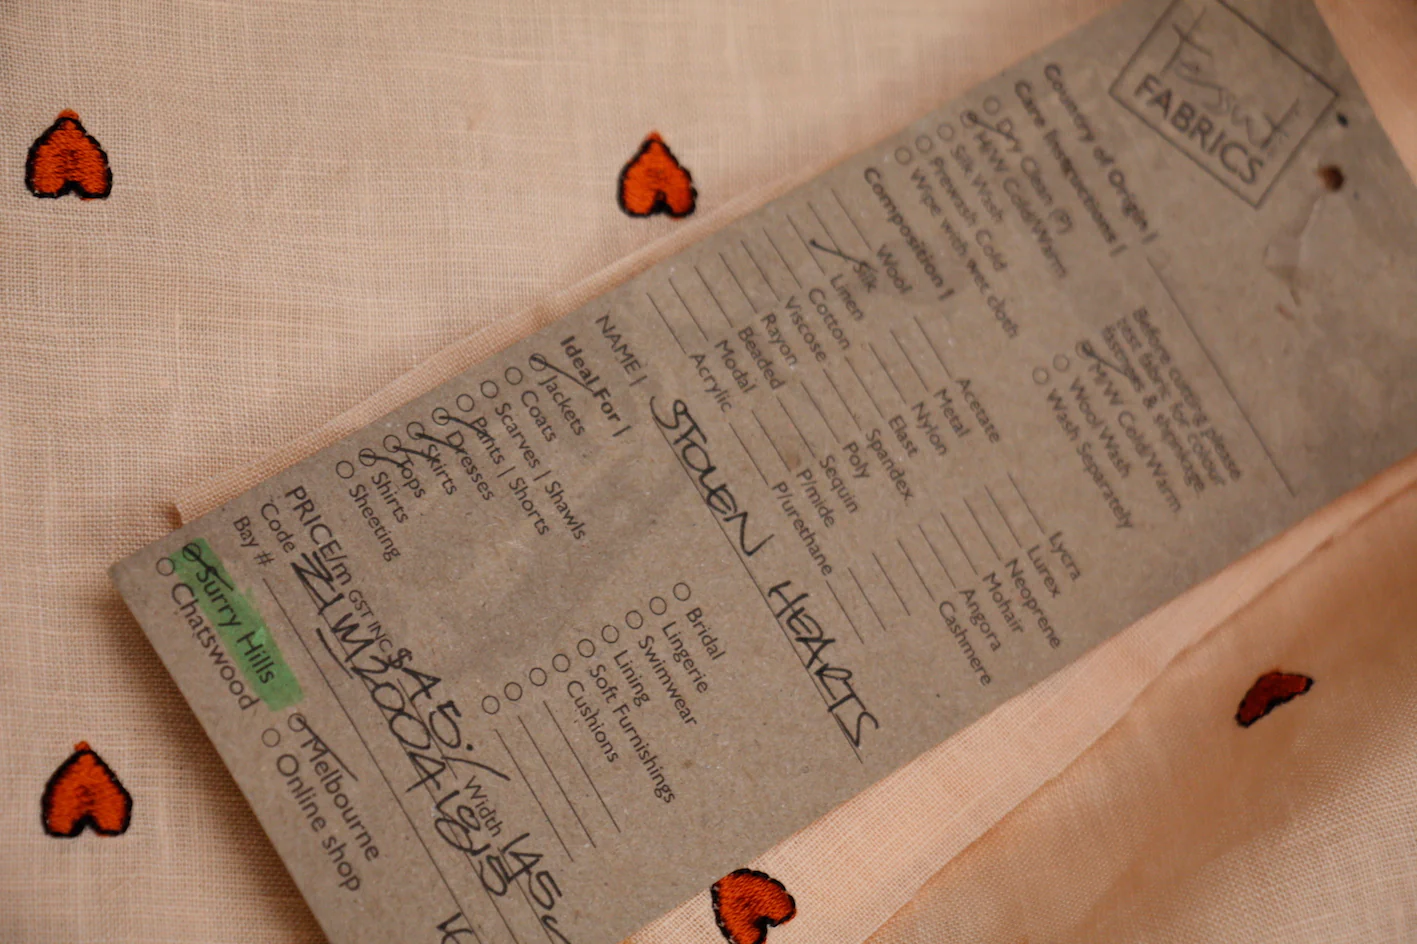 Tessuti
FABRICS
Country of Origin |
Care Instructions |
Dry Clean (P)
H/W Cold/Warm
Silk Wash
Prewash Cold
Wipe with wet cloth
Before cutting please
test fabric for colour
fastness & shrinkage.
M/W Cold/Warm
Wool Wash
Wash Separately
Composition |
Wool
Silk
Linen
Cotton
Viscose
Rayon
Beaded
Modal
Acrylic
Acetate
Metal
Nylon
Elast
Spandex
Poly
Sequin
P/mide
P/urethane
Lycra
Lurex
Neoprene
Mohair
Angora
Cashmere
NAME | STOLEN HEARTS
Ideal For |
Jackets
Coats
Scarves | Shawls
Pants | Shorts
Dresses
Skirts
Tops
Shirts
Sheeting
Bridal
Lingerie
Swimwear
Lining
Soft Furnishings
Cushions
PRICE/m GST INC. $45./ Width 145c
Code ZIW2004-18
Bay #
Surry Hills
Chatswood
Melbourne
Online shop